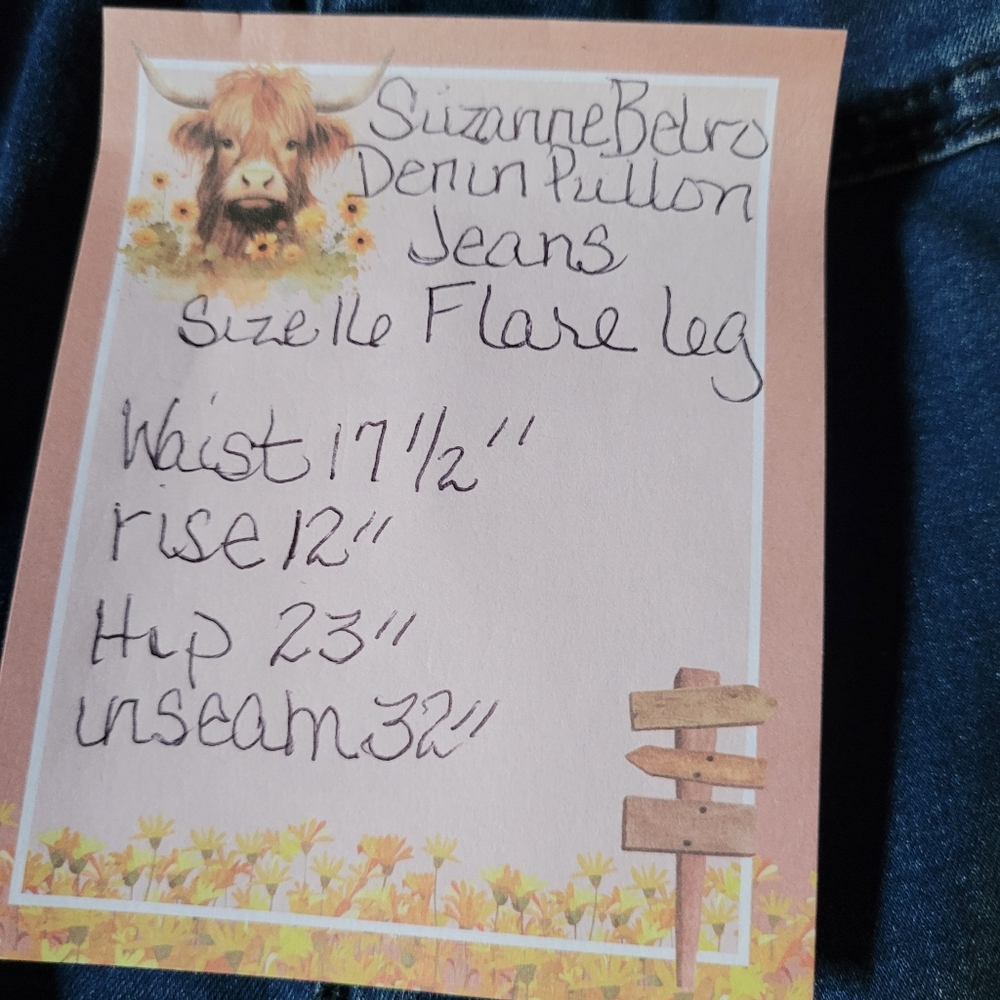 Suzanne Betro
Denim Pullon
Jeans
Size 16 Flare leg
Waist 17 1/2"
rise 12"
Hip 23"
inseam 32"